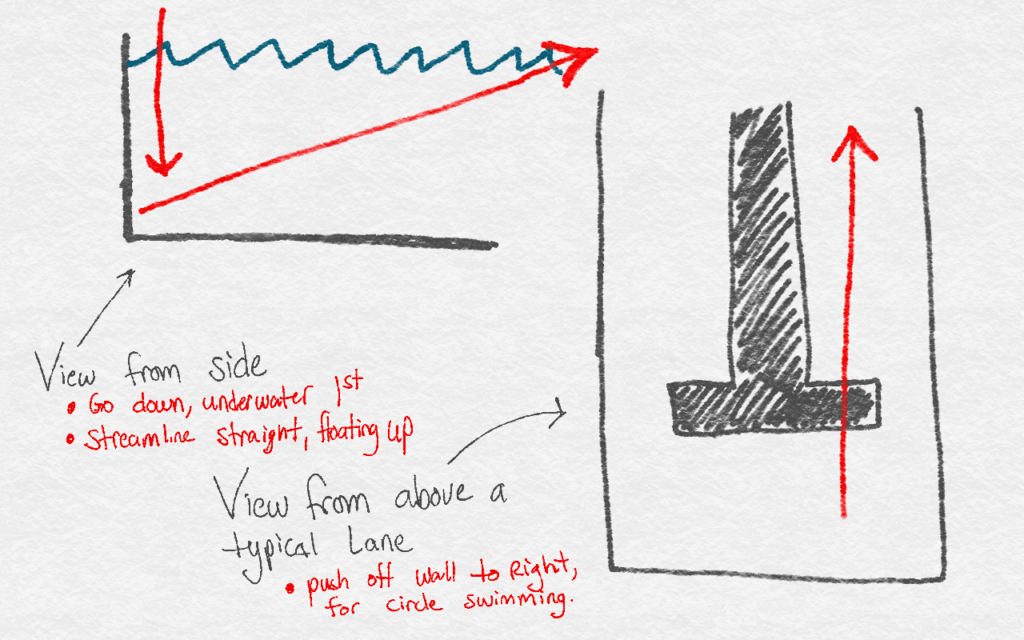 View from side
• Go down, underwater 1st
• Streamline straight, floating up
View from above a
typical Lane
• push off wall to Right,
for circle swimming.